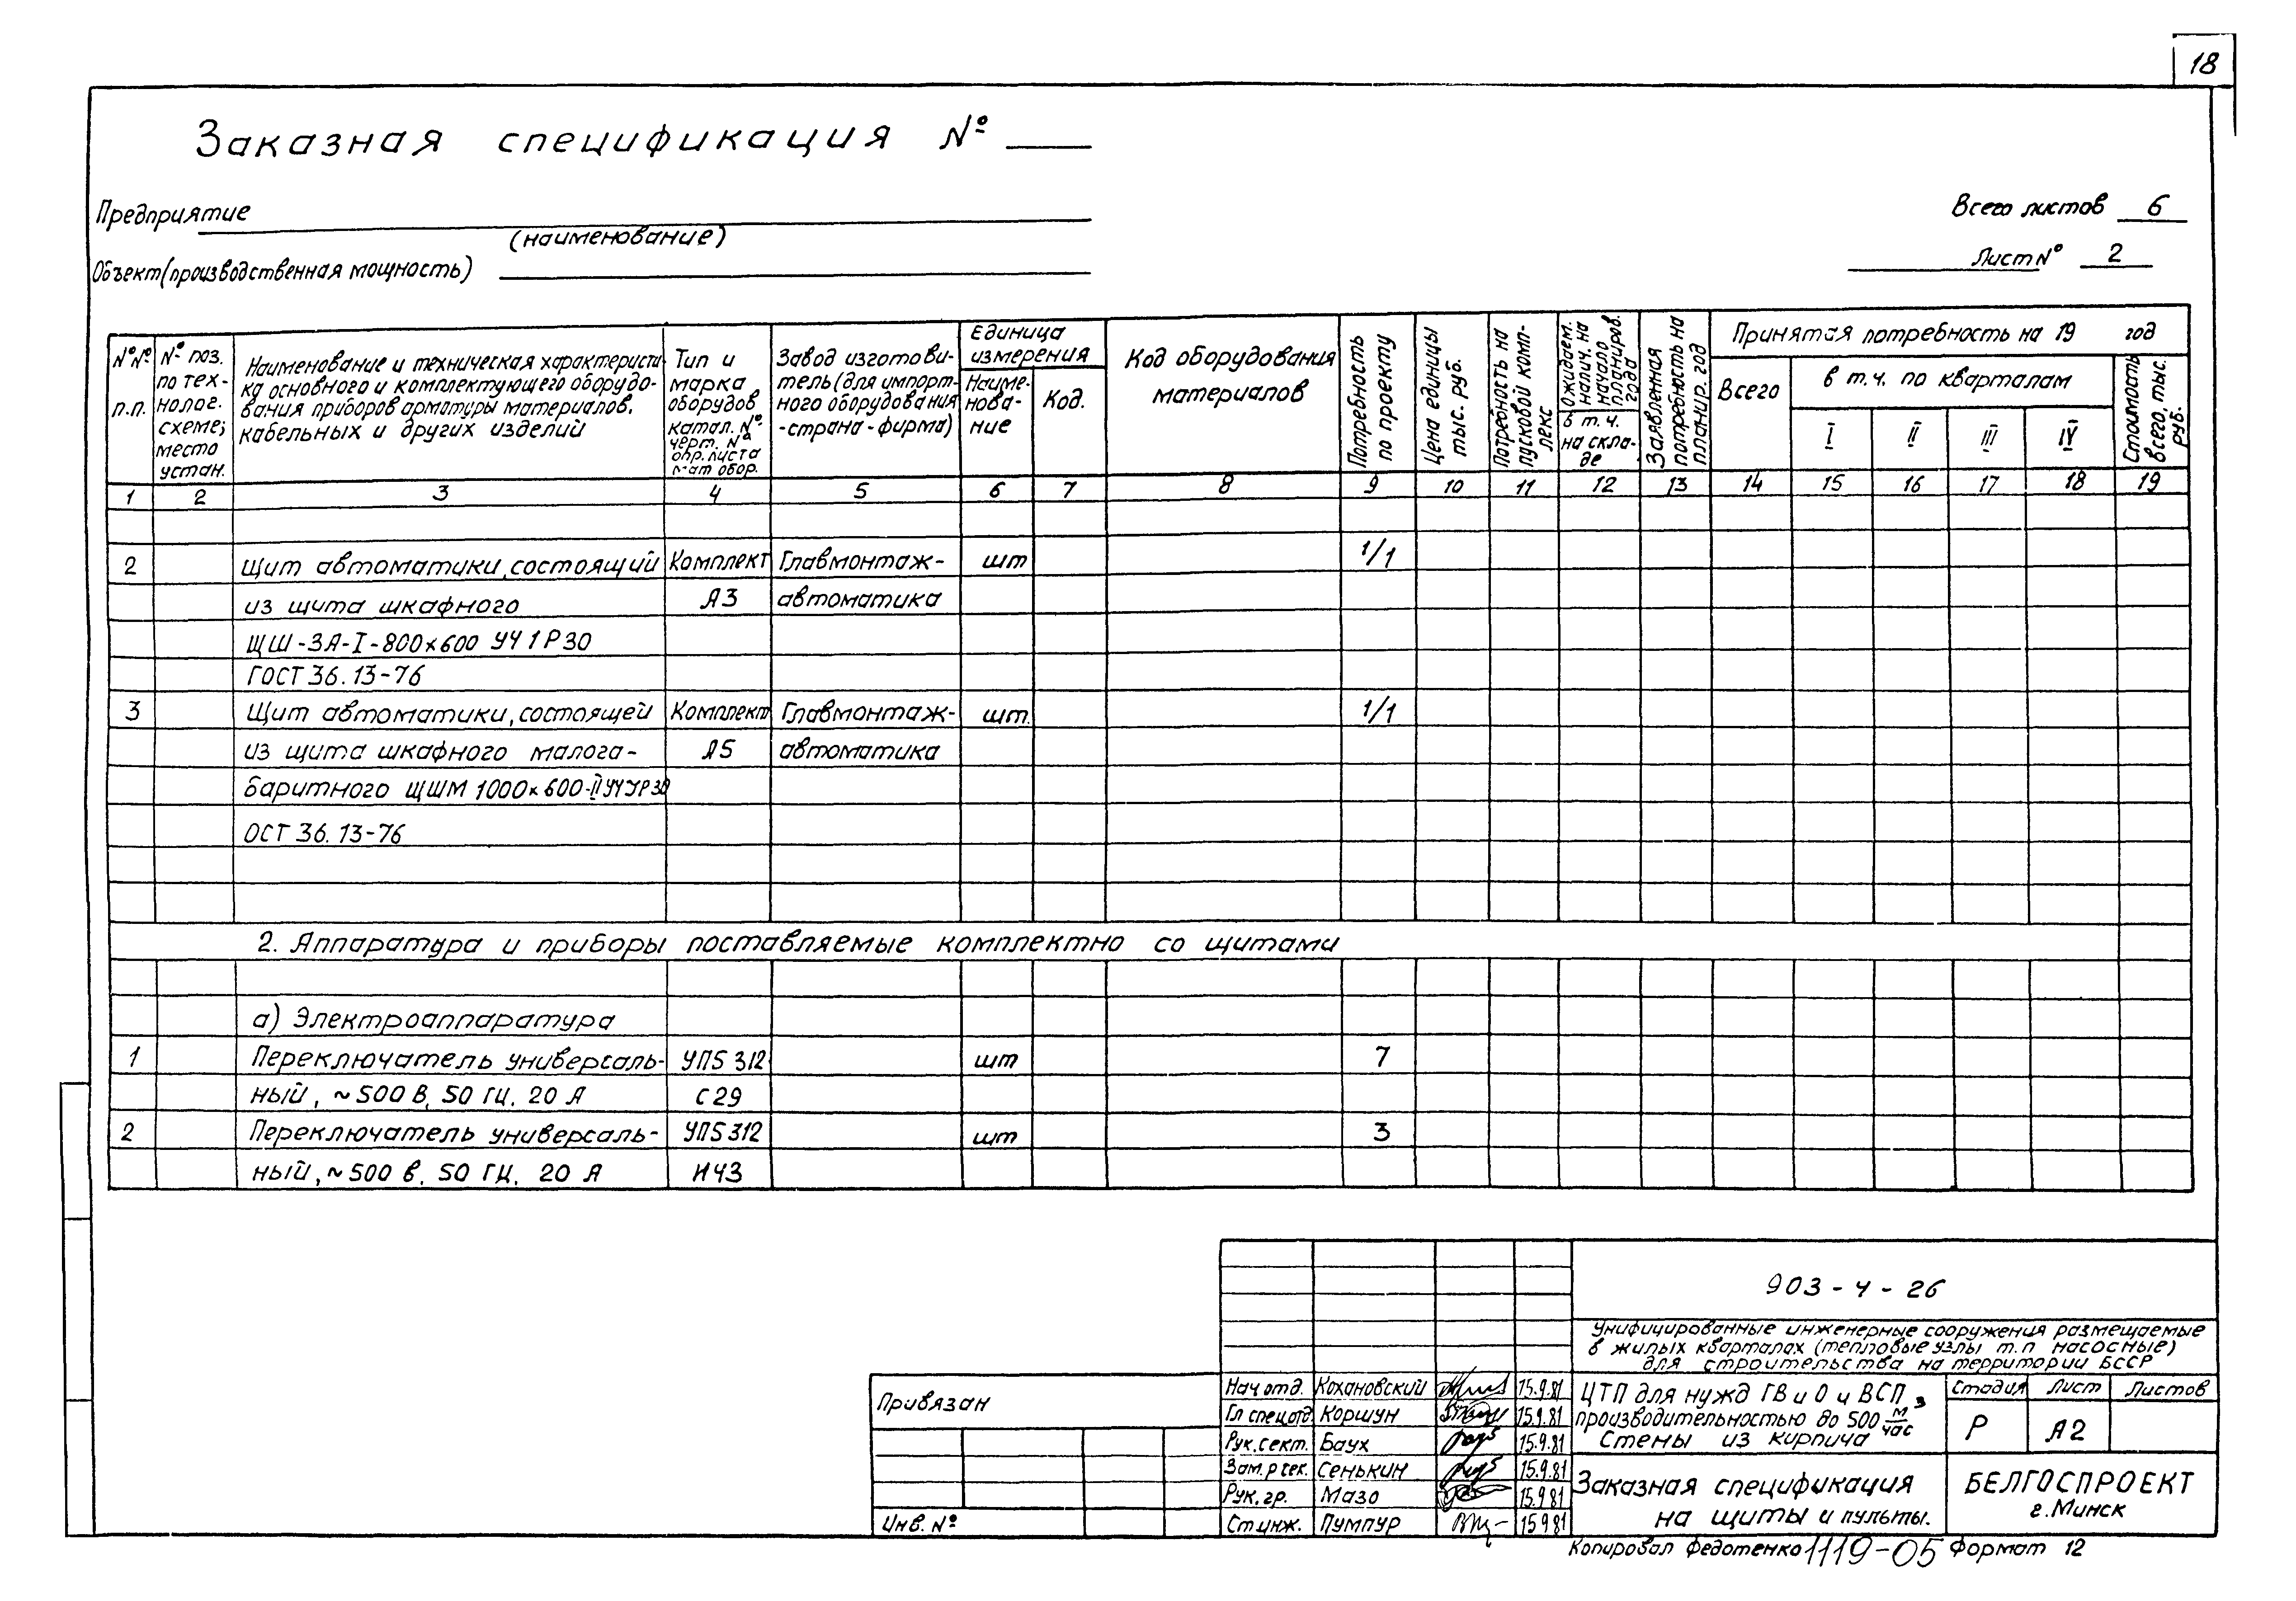 18
Заказная спецификация №
Предприятие
(наименование)
Объект (производственная мощность)
Всего листов 6
Лист № 2
№№ п.п.
№ поз. по тех- нолог. схеме; место устан.
Наименование и техническая характеристи-
ка основного и комплектующего оборудо-
вания приборов арматуры материалов,
кабельных и других изделий
Тип и
марка
оборудов
катал. №
черт. №
опр. листа
мат обор.
Завод изготови-
тель (для импорт-
ного оборудования
-страна-фирма)
Единица
измерения
Наиме-
нова-
ние
Код.
Код оборудования
материалов
Потребность
по проекту
Цена единицы
тыс. руб.
Потребность на
пусковой комп-
лекс
Ожидаем.
налич. на
начало
планиров.
года
в т.ч.
на скла-
де
Заявленная
потребность на
планир. год
Принятая потребность на 19 год
Всего
в т.ч. по кварталам
I II III IV
Стоимость
всего, тыс.
руб.
1 2 3 4 5 6 7 8 9 10 11 12 13 14 15 16 17 18 19
2 Щит автоматики, состоящий Комплект Главмонтаж- шт 1/1
из щита шкафного Я3 автоматика
ЩШ-ЗА-I-800×600 УЧ 1Р30
ГОСТ 36.13-76
3 Щит автоматики, состоящей Комплект Главмонтаж- шт. 1/1
из щита шкафного малога- Я5 автоматика
баритного ЩШМ 1000×600-II УЧ УР30
ОСТ 36.13-76
2. Аппаратура и приборы поставляемые комплектно со щитами
а) Электроаппаратура
1 Переключатель универсаль- УП5312 шт 7
ный, ~500 В, 50 Гц. 20 А С29
2 Переключатель универсаль- УП5312 шт 3
ный, ~500 в. 50 Гц. 20 А И43
903-4-26
Унифицированные инженерные сооружения размещаемые
в жилых кварталах (тепловые узлы т.п насосные)
для строительства на территории БССР
Привязан
Инв. №
Нач отд. Кохановский 15.9.81
Гл спец отд Коршун 15.9.81
Рук. сект. Баух 15.9.81
Зам. р сек. Сенькин 15.9.81
Рук. гр. Мазо 15.9.81
Ст инж. Пумпур 15 9 81
ЦТП для нужд ГВ и О и ВСП
производительностью до 500 м3/час
Стены из кирпича
Стадия Лист Листов
Р А2
Заказная спецификация
на щиты и пульты.
БЕЛГОСПРОЕКТ
г. Минск
Копировал Федотенко 1119-05 Формат 12